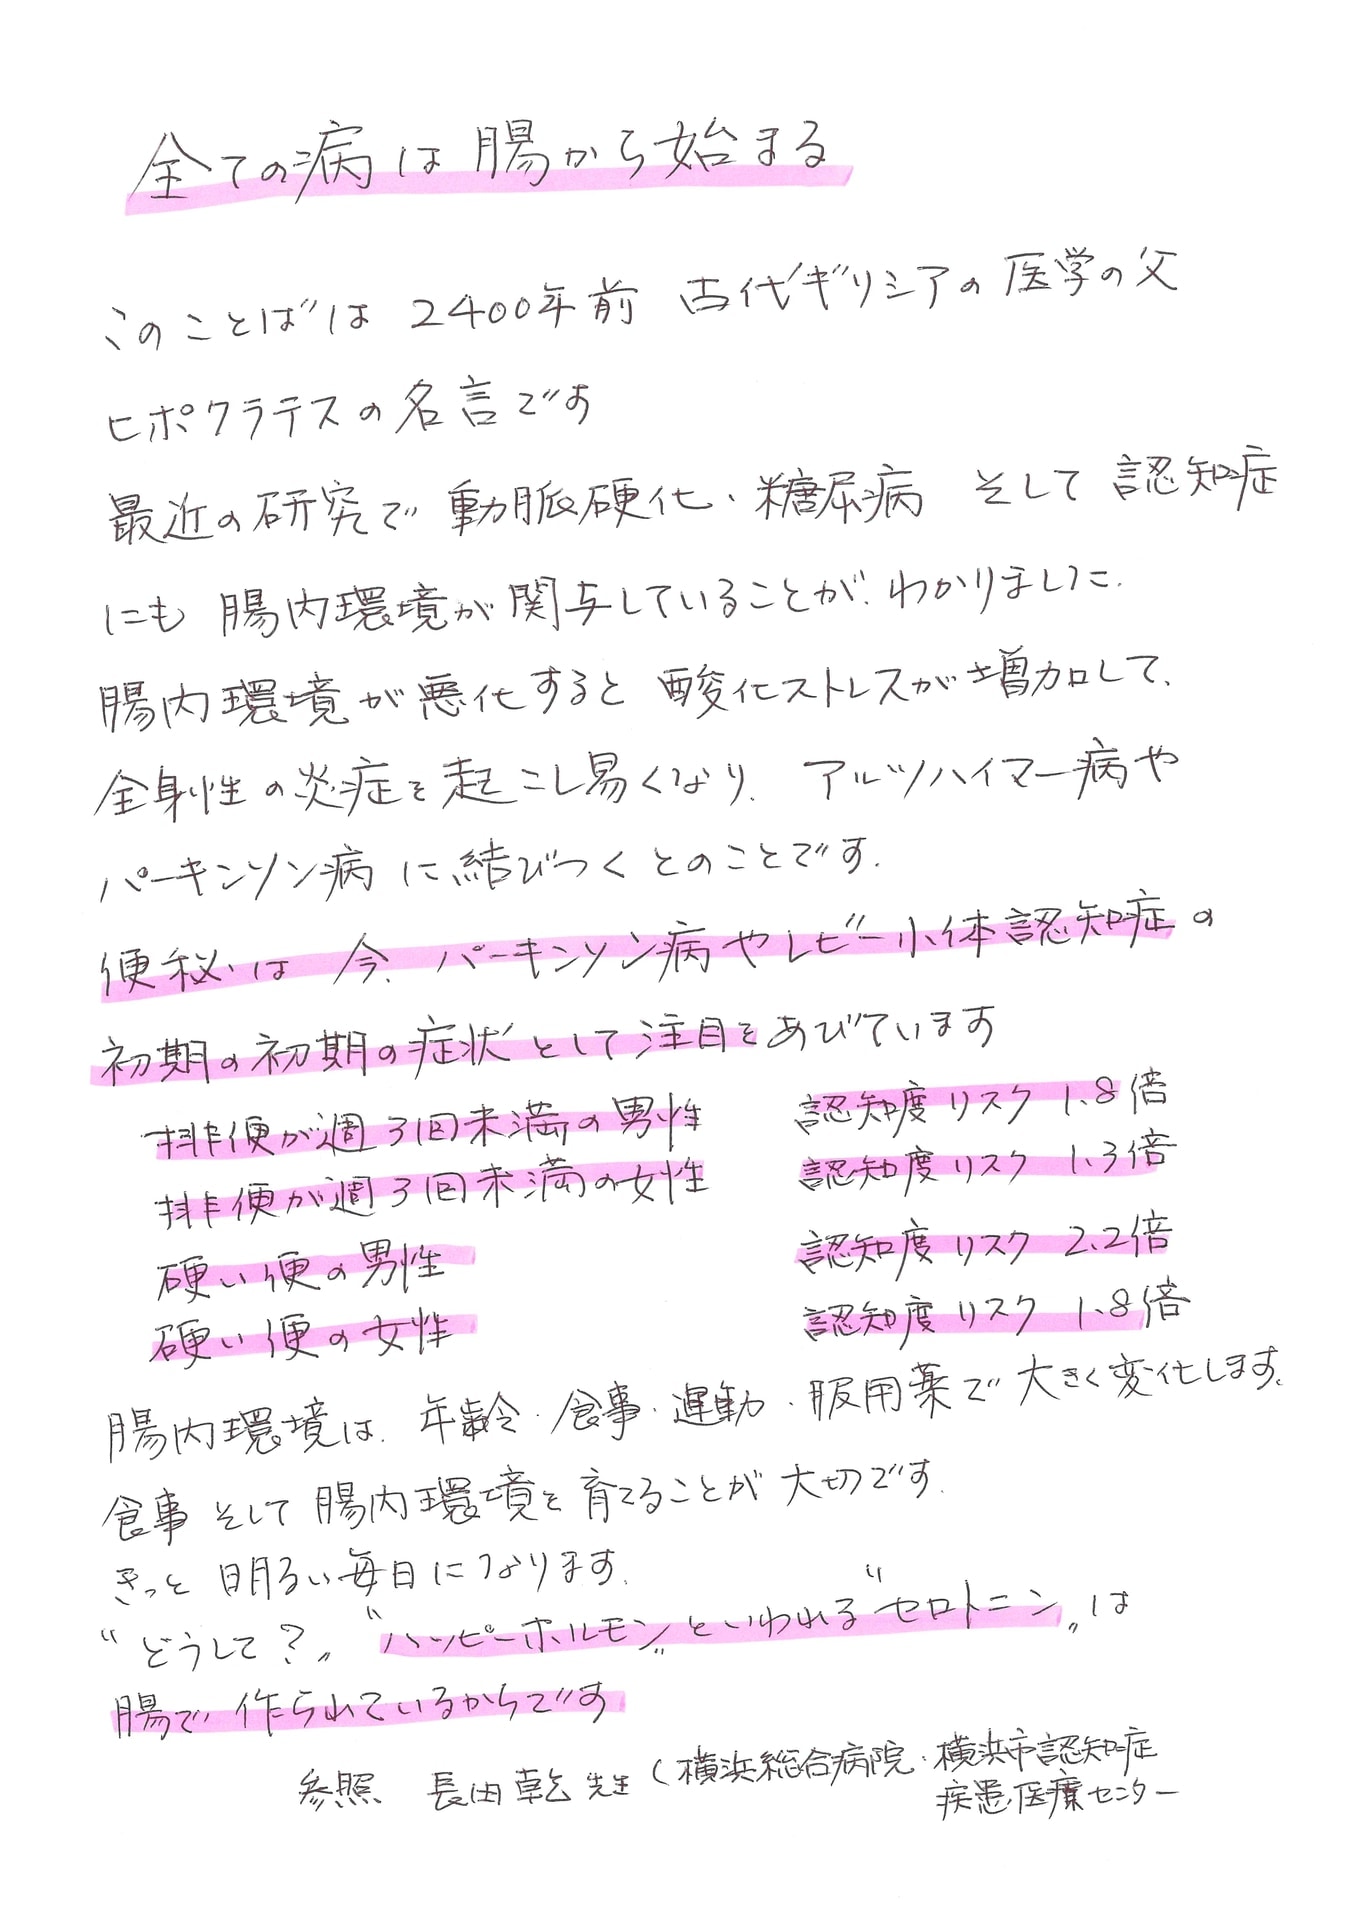 全ての病は腸から始まる
このことばは 2400年前 古代ギリシアの医学の父
ヒポクラテスの名言です
最近の研究で 動脈硬化・糖尿病 そして 認知症
にも 腸内環境が関与していることが、わかりました。
腸内環境が悪化すると 酸化ストレスが増加して、
全身性の炎症を起こし易くなり、アルツハイマー病や
パーキンソン病に結びつくとのことです。
便秘は 今、パーキンソン病やレビー小体認知症の
初期の初期の症状として注目をあびています
排便が週3回未満の男性 認知度リスク 1.8倍
排便が週3回未満の女性 認知度リスク 1.3倍
硬い便の男性 認知度リスク 2.2倍
硬い便の女性 認知度リスク 1.8倍
腸内環境は、年齢・食事・運動・服用薬で大きく変化します。
食事 そして 腸内環境を育てることが大切です。
きっと 明るい毎日になります。
“どうして?„ “ハッピーホルモン„といわれる“セロトニン„は
腸で作られているからです
参照 長田乾先生(横浜総合病院・横浜市認知症
疾患医療センター